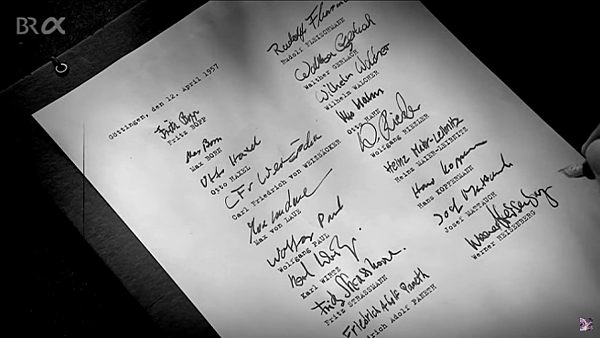 BRα
Göttingen, den 12. April 1957
Fritz Bopp
Fritz BOPP
Max Born
Max BORN
Otto Haxel
Otto HAXEL
CFr Weizsäcker
Carl Friedrich von WEIZSÄCKER
Max von LAUE
Wolfgang Paul
Wolfgang PAUL
Karl Wirtz
Karl WIRTZ
Fritz Strassmann
Fritz STRASSMANN
Friedrich Adolf Paneth
drich Adolf PANETH
Rudolf
Rudolf FLEISCHMANN
Walther Gerlach
Walther GERLACH
Wilhelm Walcher
Wilhelm WALCHER
Otto Hahn
Otto HAHN
W Riezler
Wolfgang RIEZLER
Heinz Maier-Leibnitz
Heinz MAIER-LEIBNITZ
Hans
Hans KOPFERMANN
Josef Mattauch
Josef MATTAUCH
Werner Heisenberg
Werner HEISENBERG